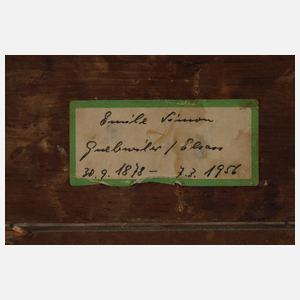 Emile Simon
Guebwiler / Elsass
30.9.1878 – 7.3.1956